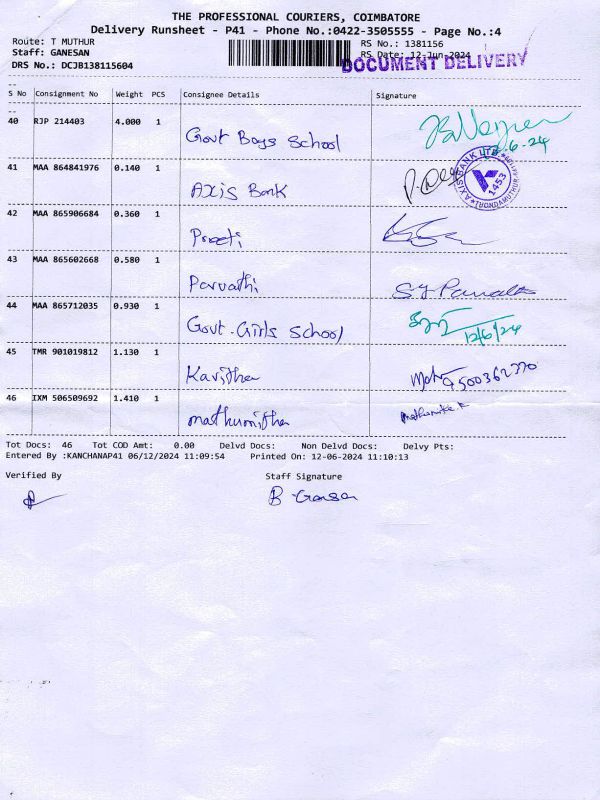 THE PROFESSIONAL COURIERS, COIMBATORE
Delivery Runsheet - P41 - Phone No.:0422-3505555 - Page No.:4
Route: T MUTHUR
Staff: GANESAN
DRS No.: DCJB138115604
RS No.: 1381156
RS Date: 12-Jun-2024
DOCUMENT DELIVERY
S No Consignment No Weight PCS Consignee Details Signature
40 RJP 214403 4.000 1 Govt Boys School
41 MAA 864841976 0.140 1 Axis Bank
AXIS BANK LTD. 1453
42 MAA 865906684 0.360 1 Preeti
43 MAA 865602668 0.580 1 Parvathi
44 MAA 865712035 0.930 1 Govt-Girls School 12/6/24
45 TMR 901019812 1.130 1 Kavitha
46 IXM 506509692 1.410 1 mathumitha
Tot Docs: 46 Tot COD Amt: 0.00 Delvd Docs: Non Delvd Docs: Delvy Pts:
Entered By :KANCHANAP41 06/12/2024 11:09:54 Printed On: 12-06-2024 11:10:13
Verified By Staff Signature